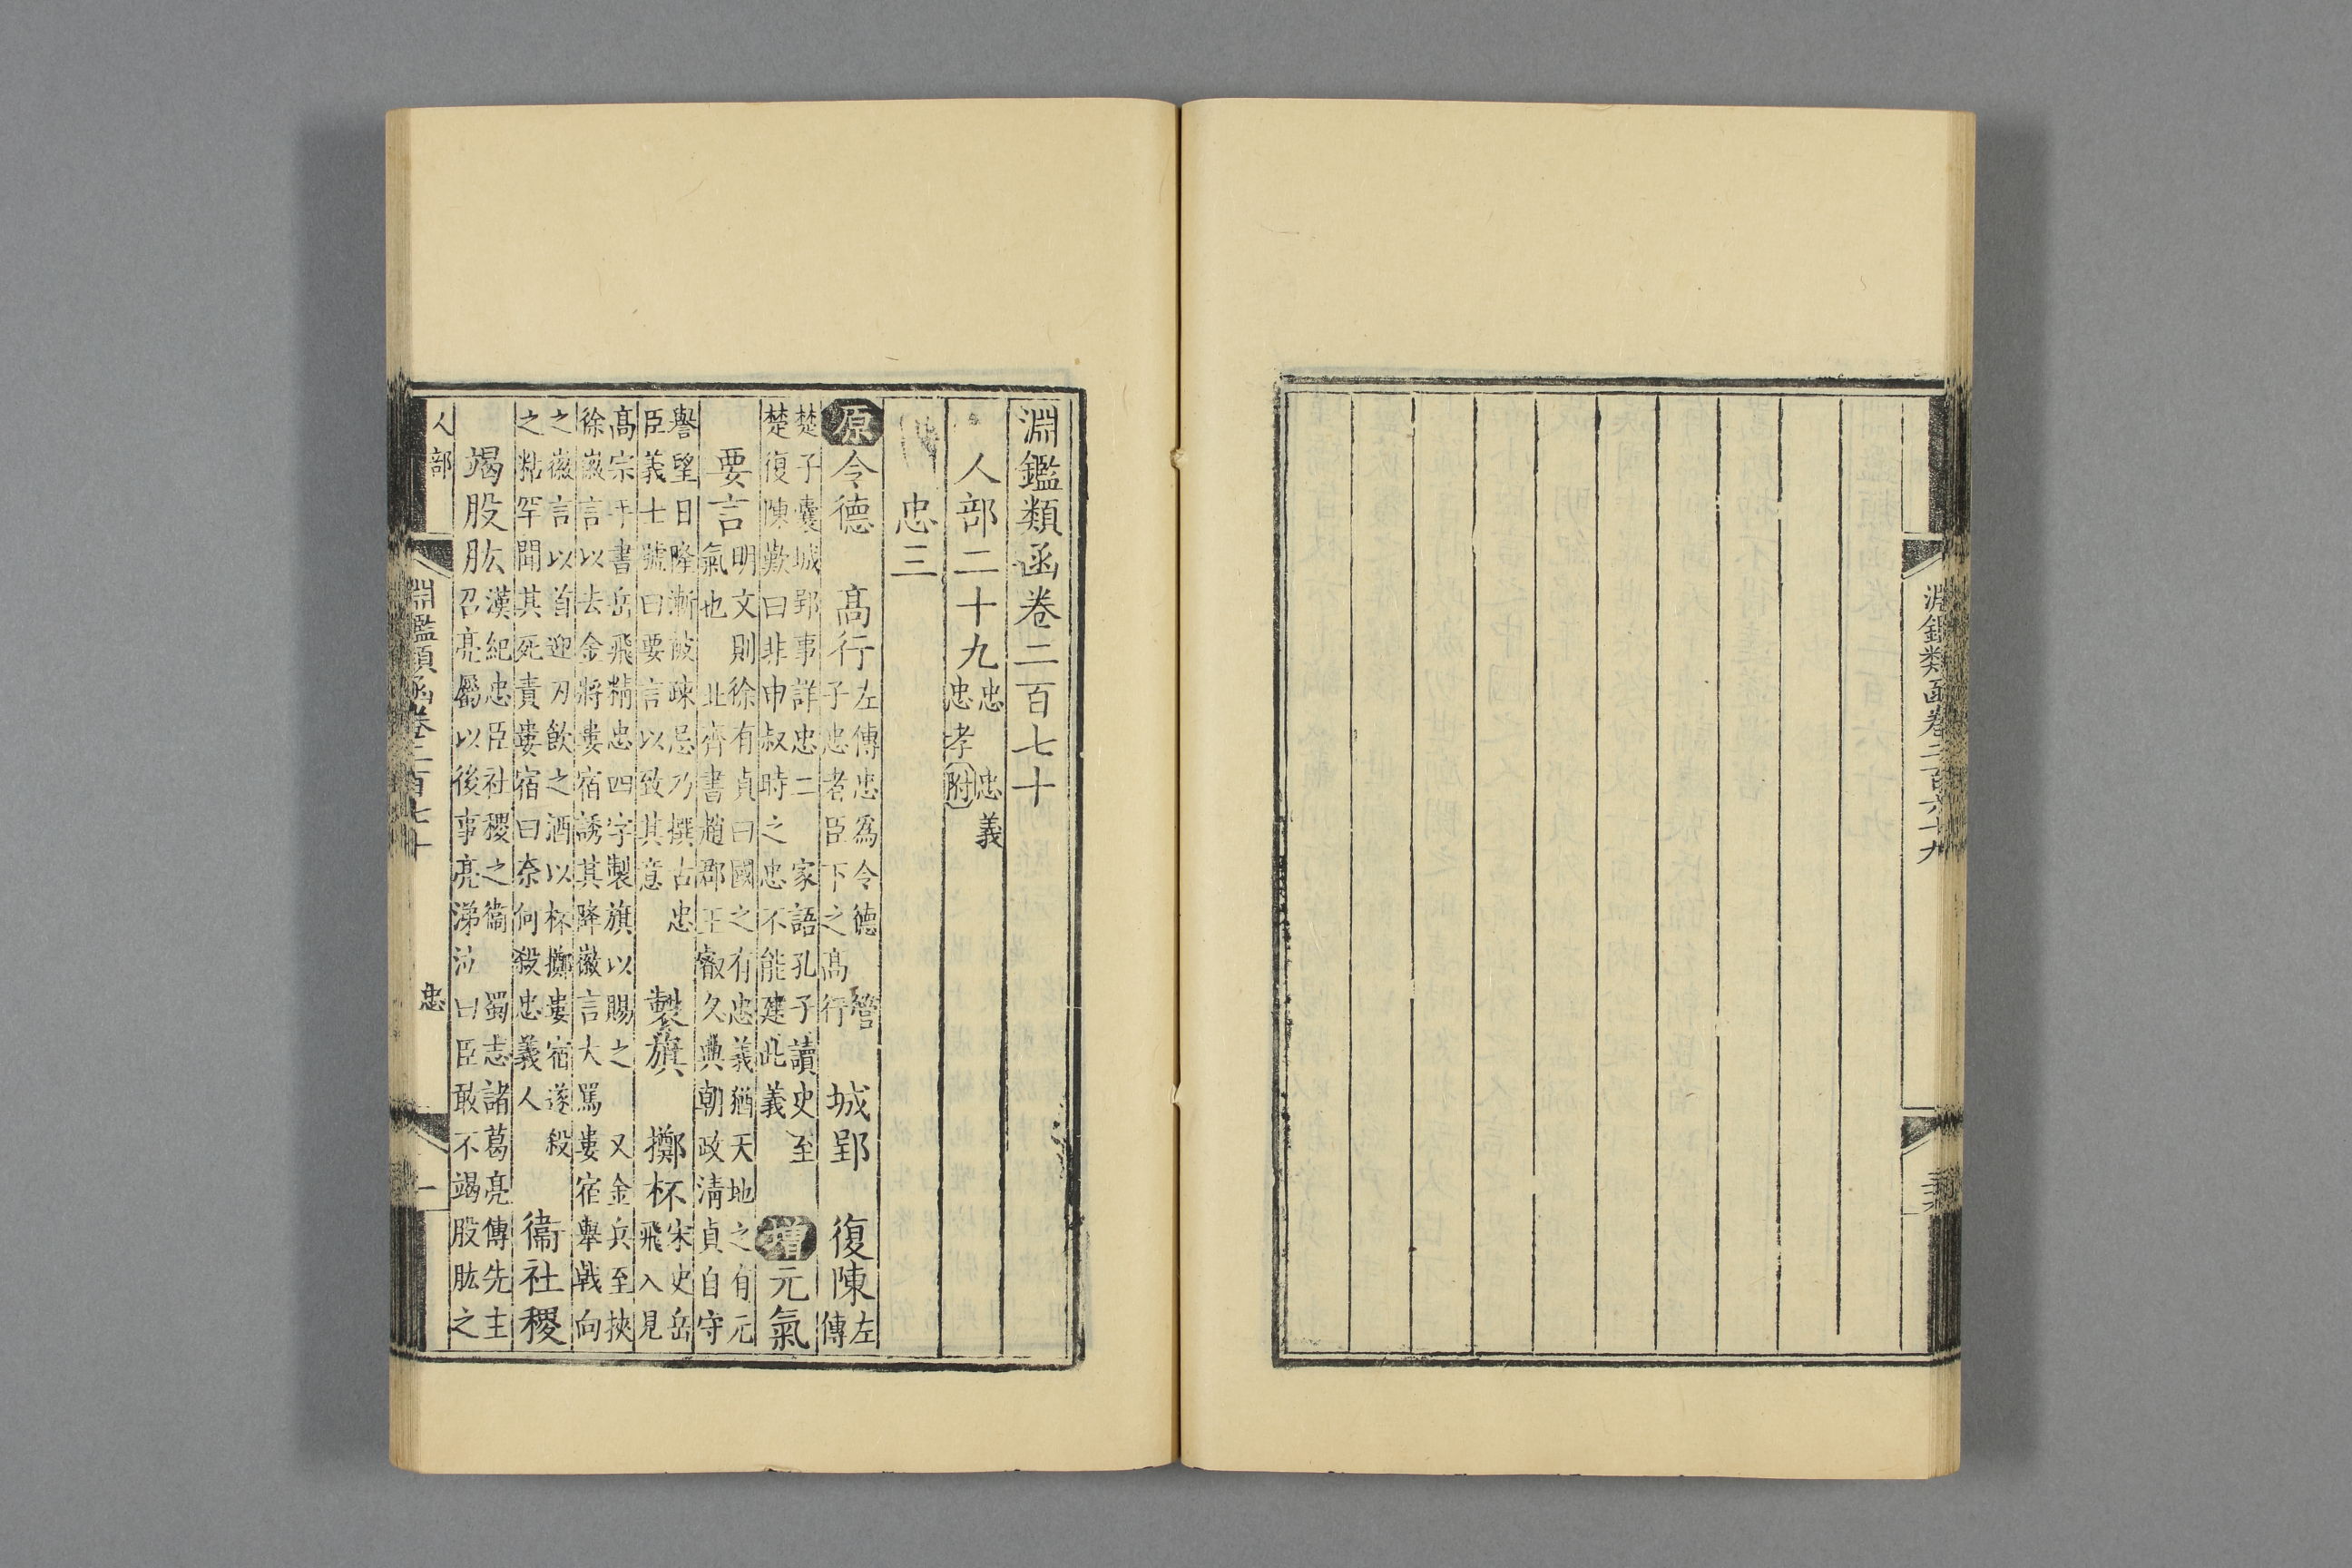 淵鑑類函卷二百六十九
淵鑑類函卷二百七十
人部二十九
忠 忠義
忠孝附
忠三
原令德 高行
左傳忠爲令德 管
子忠者臣下之高行
城郢 復陳
左
傳
楚子囊城郢事詳忠二 家語孔子讀史至
楚復陳歎曰非申叔時之忠不能建此義
增元氣
要言
明文則徐有貞曰國之有忠義猶天地之有元
氣也 北齊書趙郡王叡久典朝政清貞自守
譽望日隆漸被疎忌乃撰古忠
臣義士號曰要言以致其意
製旗 擲杯
宋史岳
飛入見
高宗手書岳飛精忠四字製旗以賜之 又金兵至挾
徐徽言以去金將婁宿誘其降徽言大罵婁宿舉戟向
之徽言以首迎刃飲之酒以杯擲婁宿遂殺
之粘罕聞其死責婁宿曰奈何殺忠義人
衞社稷
竭股肱
漢紀忠臣社稷之衞 蜀志諸葛亮傳先主
召亮屬以後事亮涕泣曰臣敢不竭股肱之
人部
淵鑑類函卷二百七十
忠
一